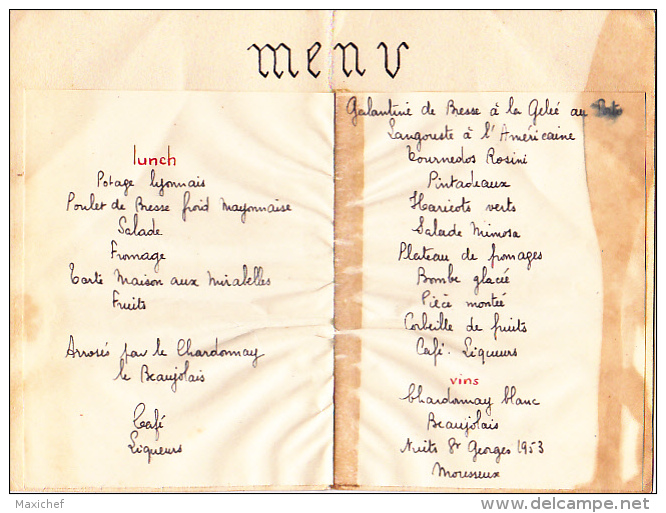 menu
lunch
Potage lyonnais
Poulet de Bresse froid Mayonnaise
Salade
Fromage
Tarte Maison aux Mirabelles
Fruits
Arrosés par le Chardonnay
le Beaujolais
Café
Liqueurs
Galantine de Bresse à la Gelée au Porto
Langouste à l'Américaine
Tournedos Rosini
Pintadeaux
Haricots verts
Salade Mimosa
Plateau de fromages
Bombe glacée
Pièce montée
Corbeille de fruits
Café. Liqueurs
vins
Chardonnay blanc
Beaujolais
Nuits St Georges 1953
Mousseux
Maxichef
www.delcampe.net